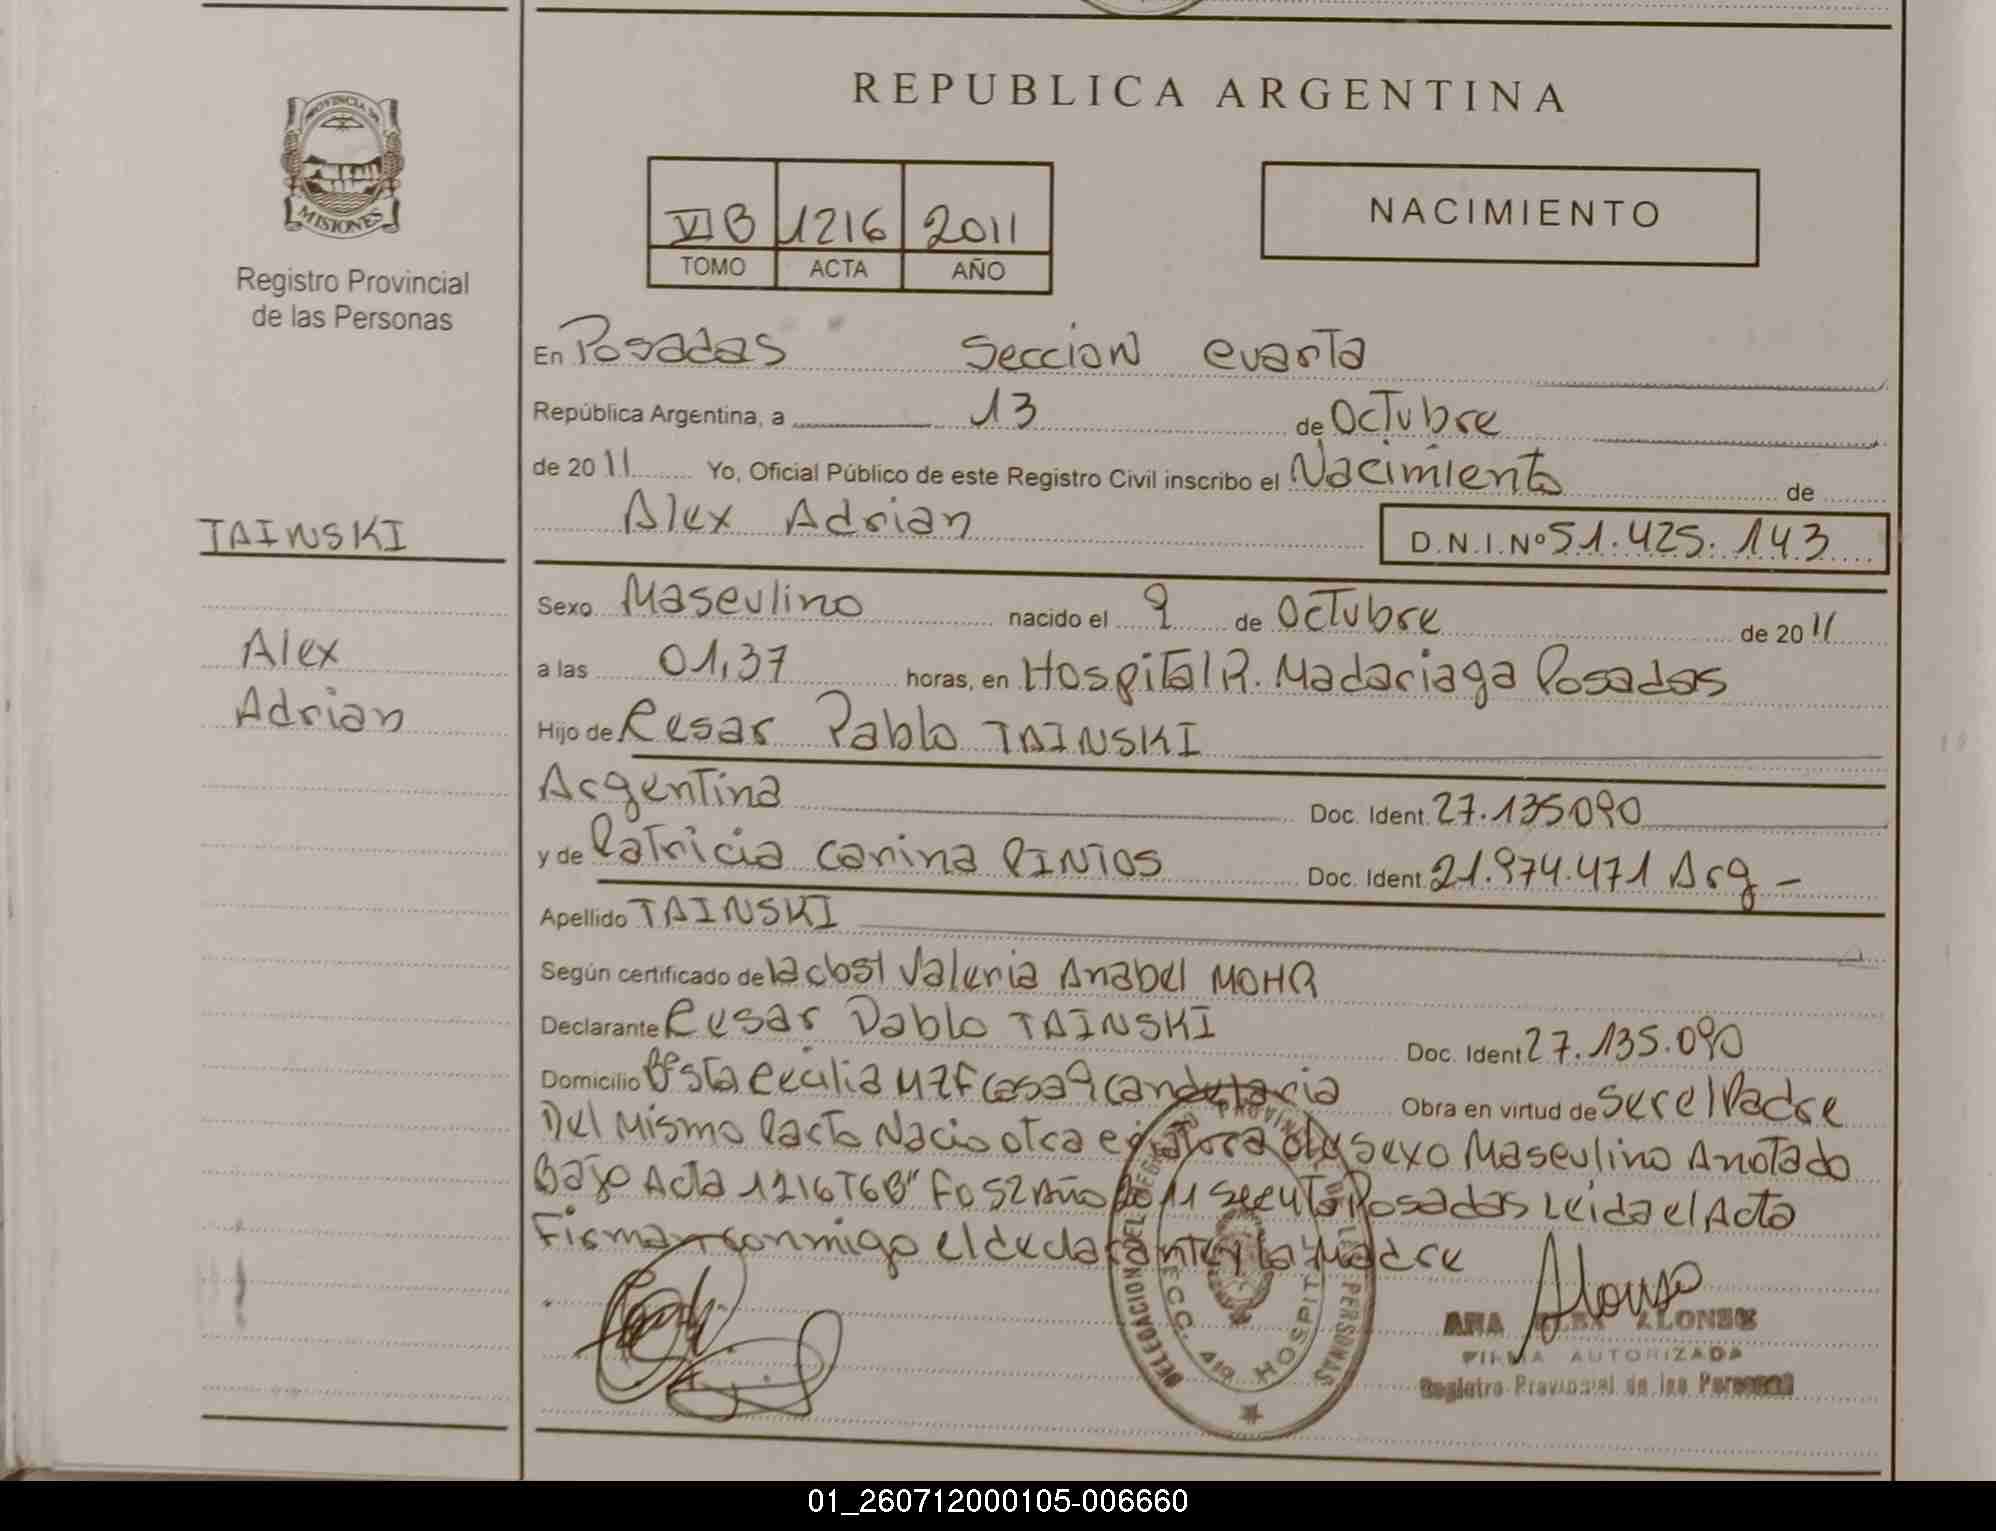 REPUBLICA ARGENTINA
PROVINCIA DE
MISIONES
Registro Provincial
de las Personas
VI B 1216 2011
TOMO ACTA AÑO
NACIMIENTO
En Posadas Seccion cuarta
República Argentina, a 13 de Octubre
de 2011 Yo, Oficial Público de este Registro Civil inscribo el Nacimiento de
Alex Adrian
D.N.I. Nº 51.425.143
TAINSKI
Alex
Adrian
Sexo Masculino nacido el 9 de Octubre de 2011
a las 01,37 horas, en Hospital R. Madariaga Posadas
Hijo de Cesar Pablo TAINSKI
Argentina Doc. Ident. 27.135090
y de Patricia Carina PINTOS Doc. Ident. 21.974.471 Arg -
Apellido TAINSKI
Según certificado de la obst Valeria Anabel MOHR
Declarante Cesar Pablo TAINSKI Doc. Ident 27.135.090
Domicilio Bº Sta Cecilia MZF Casa 9 Candelaria Obra en virtud de Ser el Padre
Del Mismo Parto Nacio otra criatura de sexo Masculino Anotado
Bajo Acta 1216 T6B" Fo 52 Año 2011 Sec 4ta Posadas Leida el Acta
Firman conmigo el declarante y la Madre
DELEGACION DEL REGISTRO PROVINCIAL DE LAS PERSONAS
SECC. 4ta HOSPIT
Alonso
ANA ALONSO
FIRMA AUTORIZADA
Registro Provincial de las Personas
01_260712000105-006660